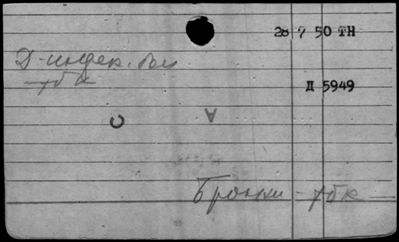 28 7 50 ТН
Д-индек. бол
тбк
Д 5949
С А
Бронхи - тбк